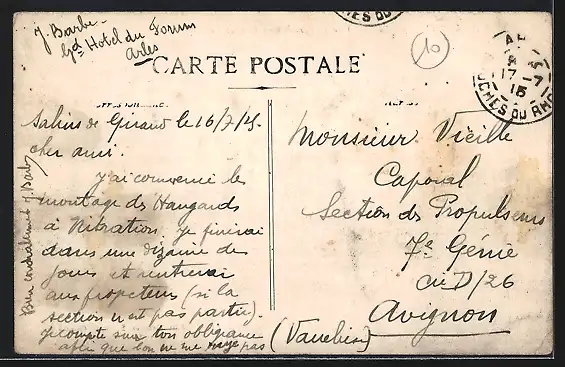 J. Barbe
Gd Hotel du Forum
Arles
10
CARTE POSTALE
17-7
15
CHES DU RHO
Salins de Giraud le 16/7/15.
cher ami.
J'ai commencé le
montage des Hangards
à Nitration. Je finirai
dans une dizaine de
jours et rentrerai
aux projecteurs (si la
section n'est pas partie).
Je compte sur ton obligeance
afin que l'on ne me raye pas
Bien cordialement J. Barbe
Monsieur Vieille
Caporal
Section des Propulseurs
7e Génie
Cie D/26
Avignon
(Vaucluse)